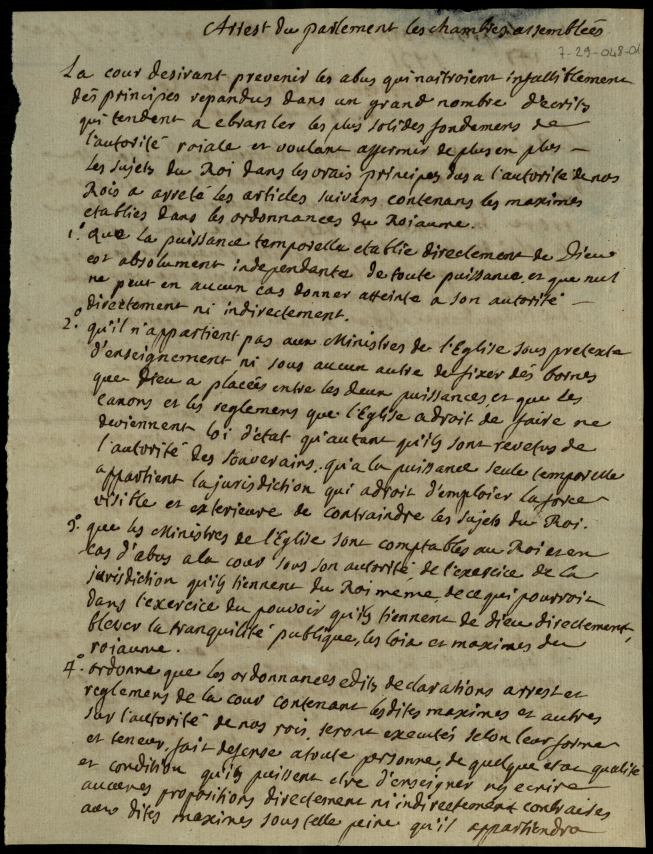 Arrest du parlement les chambres assemblées
7-29-048-01
La cour desirant prevenir les abus qui naitroient infailliblement
des principes repandus dans un grand nombre d'ecrits
qui tendent a ebranler les plus solides fondemens de
l'autorité roiale et voulant affermir de plus en plus –
les sujets du Roi dans les vrais principes dus a l'autorité de nos
Rois a arreté les articles suivans contenans les maximes
etablies dans les ordonnances du Roiaume.
1.° que la puissance temporelle etablie directement de Dieu
est absolument independante de toute puissance, et que nul
ne peut en aucun cas donner atteinte a son autorité –
directement ni indirectement.
2.° qu'il n'appartient pas aux Ministres de l'Eglise sous pretexte
d'enseignement ni sous aucun autre de fixer des bornes
que Dieu a placées entre les deux puissances, et que les
canons et les reglemens que l'Eglise a droit de faire ne
deviennent loi d'état qu'autant qu'ils sont revetus de
l'autorité des souverains, qu'a la puissance seule temporelle
appartient la jurisdiction qui a droit d'emploier la force
visible et exterieure de contraindre les sujets du Roi.
3.° que les Ministres de l'Eglise sont comptables au Roi et en
cas d'abus a la cour sous son autorité, de l'exercice de la
jurisdiction qu'ils tiennent du Roi meme, de ce qui pourroit
dans l'exercice du pouvoir qu'ils tiennent de Dieu directement,
blesser la tranquilité publique, les loix et maximes du
roiaume.
4.° ordonne que les ordonnances edits declarations arrest et
reglemens de la cour contenant lesdites maximes et autres
sur l'autorité de nos rois, seront executés selon leur forme
et teneur, fait defense a toute personne, de quelque etat qualité
et condition qu'ils puissent etre d'enseigner ny ecrire
aucunes propositions directement ni indirectement contraires
aux dites maximes sous telle peine qu'il appartiendra